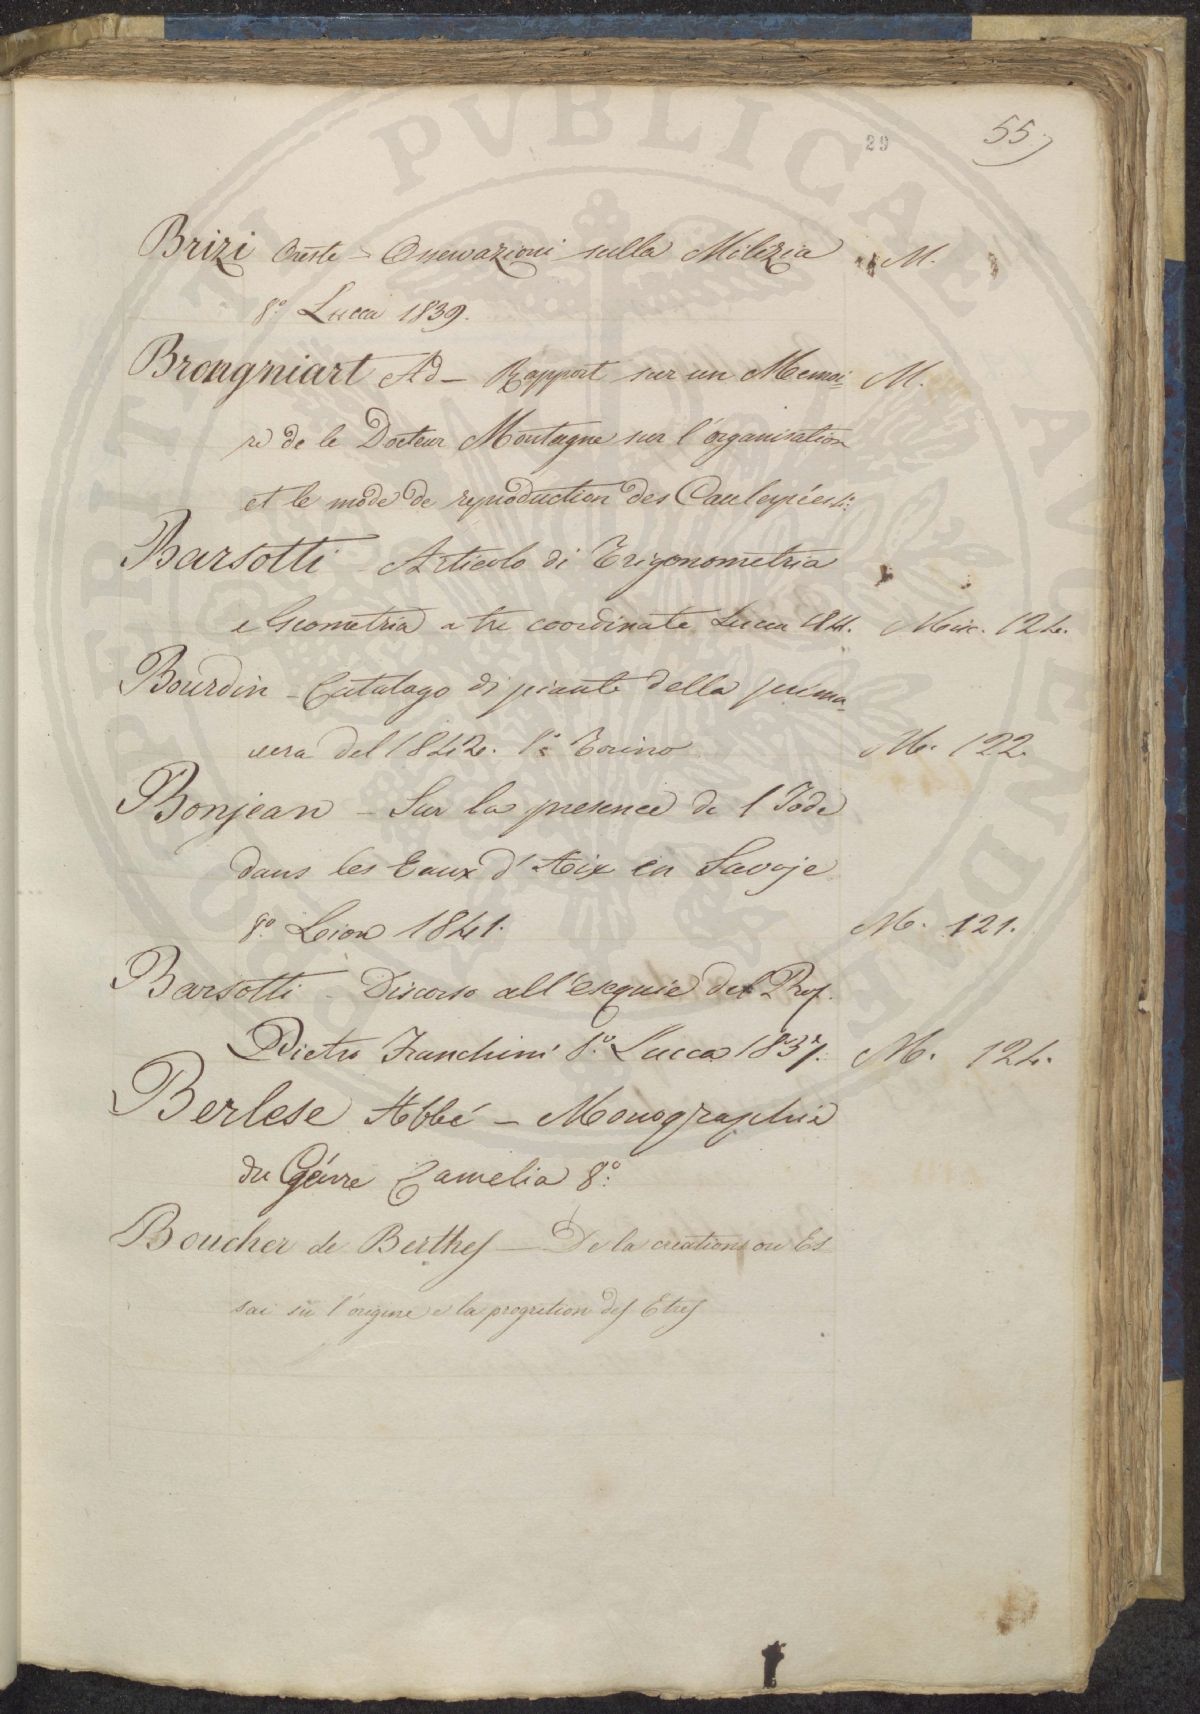 29
55
Brizi Oreste - Osservazioni sulla Milizia M.
8.° Lucca 1839.
Brongniart Ad - Rapport sur un Memoi= M.
re de le Docteur Montagne sur l'organisation
et le mode de reproduction des Caulerpées
Barsotti Articolo di Trigonometria
e Geometria a tre coordinate Lucca Misc. 124.
Bourdin - Catalago di piante della prima=
vera del 1842. Torino M. 122.
Bonjean - Sur la presence de l'Iode
dans les Eaux d'Aix en Savoje
8.° Lion 1841. M. 121.
Barsotti - Discorso all'esequie del Prof.
Pietro Franchini 8.° Lucca 1837. M. 124.
Berlese Abbé - Monographie
du Génre Camelia 8.°
Boucher de Berthes - De la creations ou Es
sai su l'origine e la progretion des Etres
PROSPERITATI PVBLICAE AVGENDAE